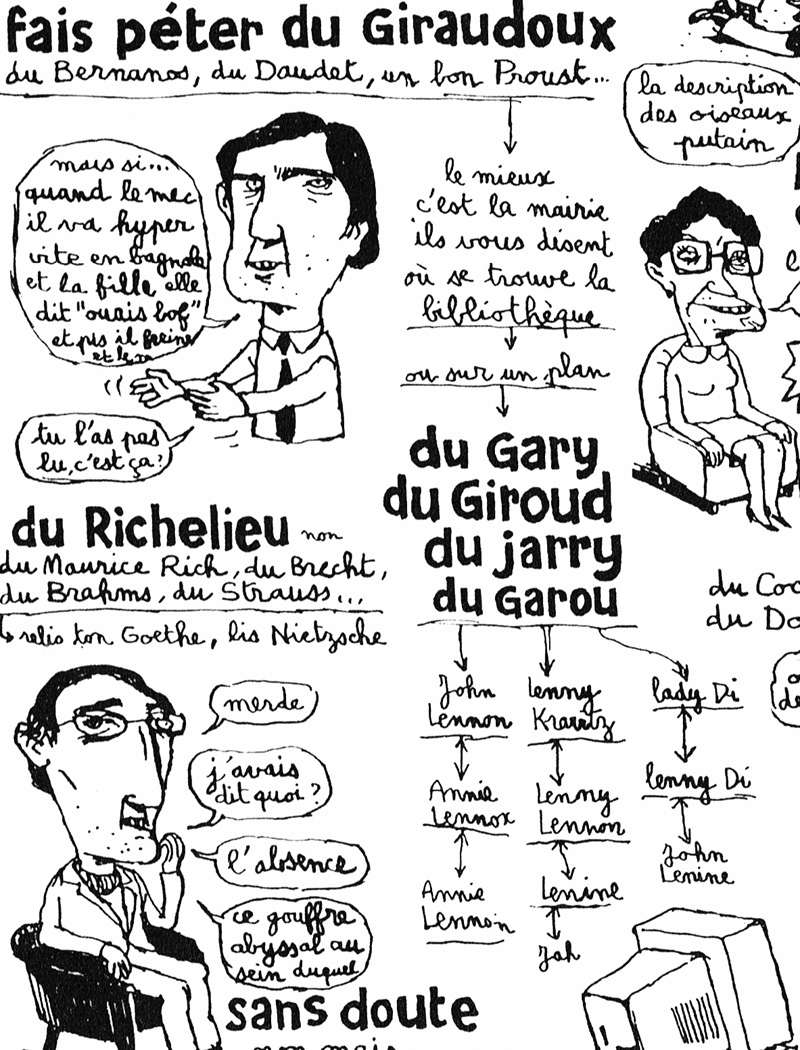 fais péter du Giraudoux
du Bernanos, du Daudet, un bon Proust...
la description
des oiseaux
putain
mais si...
quand le mec
il va hyper
vite en bagnole
et la fille elle
dit "ouais bof"
et pis il freine
et le
tu l'as pas
lu, c'est ça?
le mieux
c'est la mairie
ils vous disent
où se trouve la
bibliothèque
ou sur un plan
du Gary
du Giroud
du jarry
du Garou
du Richelieu non
du Maurice Rich, du Brecht,
du Brahms, du Strauss...
relis ton Goethe, lis Nietzsche
merde
j'avais
dit quoi?
l'absence
ce gouffre
abyssal au
sein duquel
sans doute
non mais
John
Lennon
Annie
Lennox
Annie
Lennon
lenny
Kravitz
Lenny
Lennon
Lenine
Jah
lady Di
lenny Di
John
Lenine
du Coc
du Do